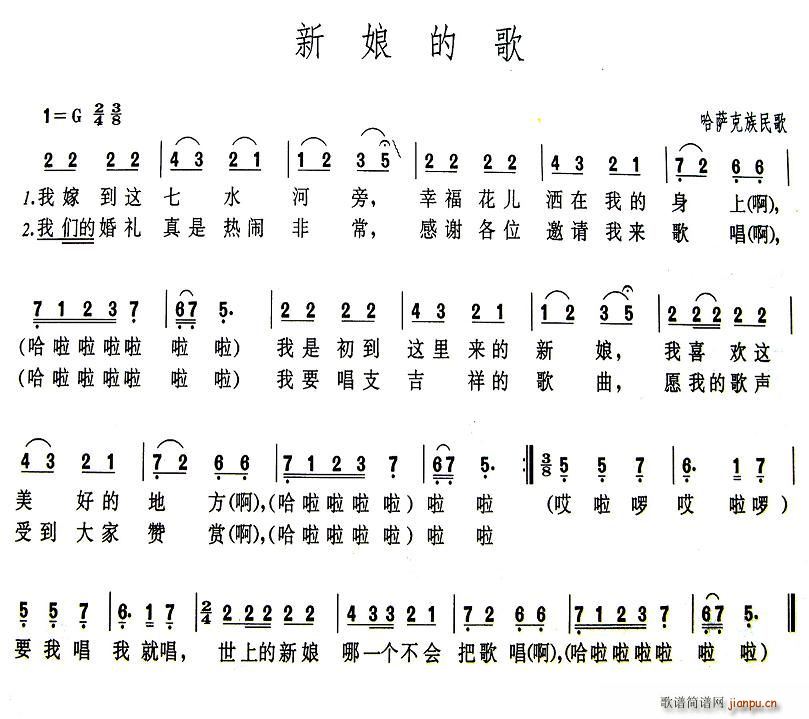 新娘的歌
1=G 2/4 3/8
哈萨克族民歌
2 2 2 2 | 4 3 2 1 | 1 2 3 5 | 2 2 2 2 | 4 3 2 1 | 7 2 6 6 |
1.我嫁到这七水河旁，幸福花儿洒在我的身上(啊)，
2.我们的婚礼真是热闹非常，感谢各位邀请我来歌唱(啊)，
7 1 2 3 7 | 6 7 5. | 2 2 2 2 | 4 3 2 1 | 1 2 3 5 | 2 2 2 2 |
(哈啦啦啦啦啦啦)我是初到这里来的新娘，我喜欢这
(哈啦啦啦啦啦啦)我要唱支吉祥的歌曲，愿我的歌声
4 3 2 1 | 7 2 6 6 | 7 1 2 3 7 | 6 7 5. :‖ 3/8 5 5 7 | 6. 1 7 |
美好的地方(啊)，(哈啦啦啦啦)啦啦(哎啦啰哎啦啰)
受到大家赞赏(啊)，(哈啦啦啦啦)啦啦
5 5 7 | 6. 1 7 | 2/4 2 2 2 2 2 | 4 3 3 2 1 | 7 2 6 6 | 7 1 2 3 7 | 6 7 5. ‖
要我唱我就唱，世上的新娘哪一个不会把歌唱(啊)，(哈啦啦啦啦啦啦)
歌谱简谱网 jianpu.cn